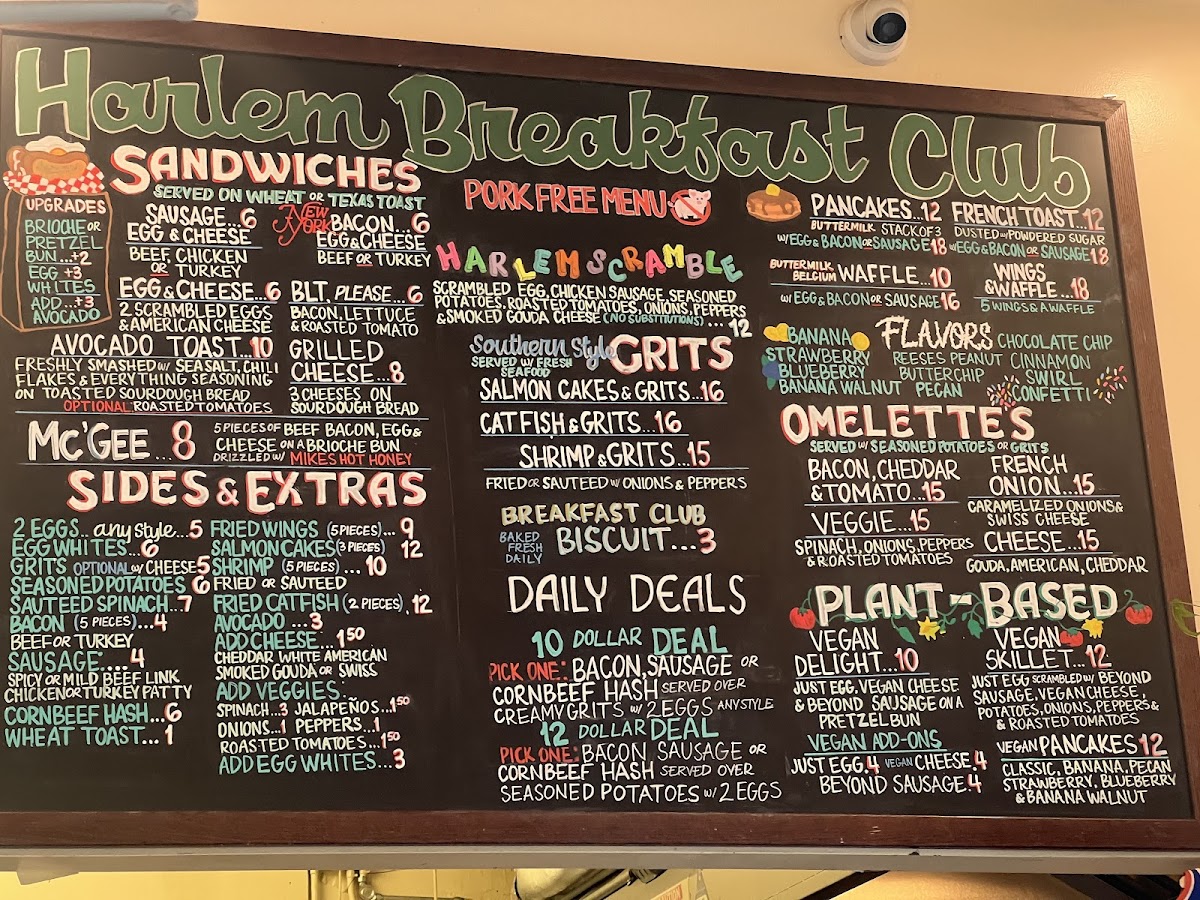 Harlem Breakfast Club
SANDWICHES
SERVED ON WHEAT OR TEXAS TOAST
UPGRADES
BRIOCHE OR
PRETZEL
BUN...+2
EGG +3
WHITES
ADD...+3
AVOCADO
SAUSAGE...6
EGG & CHEESE
BEEF, CHICKEN
OR TURKEY
NEW YORK
BACON...6
EGG & CHEESE
BEEF OR TURKEY
EGG & CHEESE...6
2 SCRAMBLED EGGS
& AMERICAN CHEESE
BLT, PLEASE...6
BACON, LETTUCE
& ROASTED TOMATO
AVOCADO TOAST...10
FRESHLY SMASHED W/ SEA SALT, CHILI
FLAKES & EVERYTHING SEASONING
ON TOASTED SOURDOUGH BREAD
OPTIONAL ROASTED TOMATOES
GRILLED
CHEESE...8
3 CHEESES ON
SOURDOUGH BREAD
MC'GEE...8
5 PIECES OF BEEF BACON, EGG &
CHEESE ON A BRIOCHE BUN
DRIZZLED W/ MIKES HOT HONEY
SIDES & EXTRAS
2 EGGS.. any style...5
EGG WHITES...6
GRITS OPTIONAL W/ CHEESE 5
SEASONED POTATOES 6
SAUTEED SPINACH...7
BACON (5 PIECES)...4
BEEF OR TURKEY
SAUSAGE....4
SPICY OR MILD BEEF LINK
CHICKEN OR TURKEY PATTY
CORNBEEF HASH...6
WHEAT TOAST...1
FRIED WINGS (5 PIECES)...9
SALMON CAKES (3 PIECES) 12
SHRIMP (5 PIECES)...10
FRIED OR SAUTEED
FRIED CATFISH (2 PIECES).12
AVOCADO...3
ADD CHEESE...1 50
CHEDDAR WHITE AMERICAN
SMOKED GOUDA OR SWISS
ADD VEGGIES:
SPINACH...3 JALAPEÑOS...1 50
ONIONS...1 PEPPERS...1
ROASTED TOMATOES...1 50
ADD EGG WHITES...3
PORK FREE MENU
HARLEM SCRAMBLE
SCRAMBLED EGG, CHICKEN SAUSAGE, SEASONED
POTATOES, ROASTED TOMATOES, ONIONS, PEPPERS
& SMOKED GOUDA CHEESE (NO SUBSTITUTIONS)...12
Southern Style GRITS
SERVED W/ FRESH
SEAFOOD
SALMON CAKES & GRITS...16
CATFISH & GRITS...16
SHRIMP & GRITS...15
FRIED OR SAUTEED W/ ONIONS & PEPPERS
BREAKFAST CLUB
BAKED
FRESH
DAILY
BISCUIT...3
DAILY DEALS
10 DOLLAR DEAL
PICK ONE: BACON, SAUSAGE OR
CORNBEEF HASH SERVED OVER
CREAMY GRITS W/ 2 EGGS ANY STYLE
12 DOLLAR DEAL
PICK ONE: BACON SAUSAGE OR
CORNBEEF HASH SERVED OVER
SEASONED POTATOES W/ 2 EGGS
PANCAKES...12
BUTTERMILK STACK OF 3
W/ EGG & BACON OR SAUSAGE 18
FRENCH TOAST...12
DUSTED W/ POWDERED SUGAR
W/ EGG & BACON OR SAUSAGE 18
BUTTERMILK
BELGIUM WAFFLE...10
W/ EGG & BACON OR SAUSAGE 16
WINGS
& WAFFLE...18
5 WINGS & A WAFFLE
FLAVORS
BANANA
STRAWBERRY
BLUEBERRY
BANANA WALNUT
REESES PEANUT
BUTTER CHIP
PECAN
CHOCOLATE CHIP
CINNAMON
SWIRL
CONFETTI
OMELETTE'S
SERVED W/ SEASONED POTATOES OR GRITS
BACON, CHEDDAR
& TOMATO...15
FRENCH
ONION...15
CARAMELIZED ONIONS &
SWISS CHEESE
VEGGIE...15
SPINACH, ONIONS, PEPPERS
& ROASTED TOMATOES
CHEESE...15
GOUDA, AMERICAN, CHEDDAR
PLANT-BASED
VEGAN
DELIGHT...10
JUST EGG, VEGAN CHEESE
& BEYOND SAUSAGE ON A
PRETZEL BUN
VEGAN ADD-ONS
JUST EGG.4 VEGAN CHEESE.4
BEYOND SAUSAGE.4
VEGAN
SKILLET...12
JUST EGG SCRAMBLED W/ BEYOND
SAUSAGE, VEGAN CHEESE,
POTATOES, ONIONS, PEPPERS &
& ROASTED TOMATOES
VEGAN PANCAKES 12
CLASSIC, BANANA, PECAN
STRAWBERRY, BLUEBERRY
& BANANA WALNUT